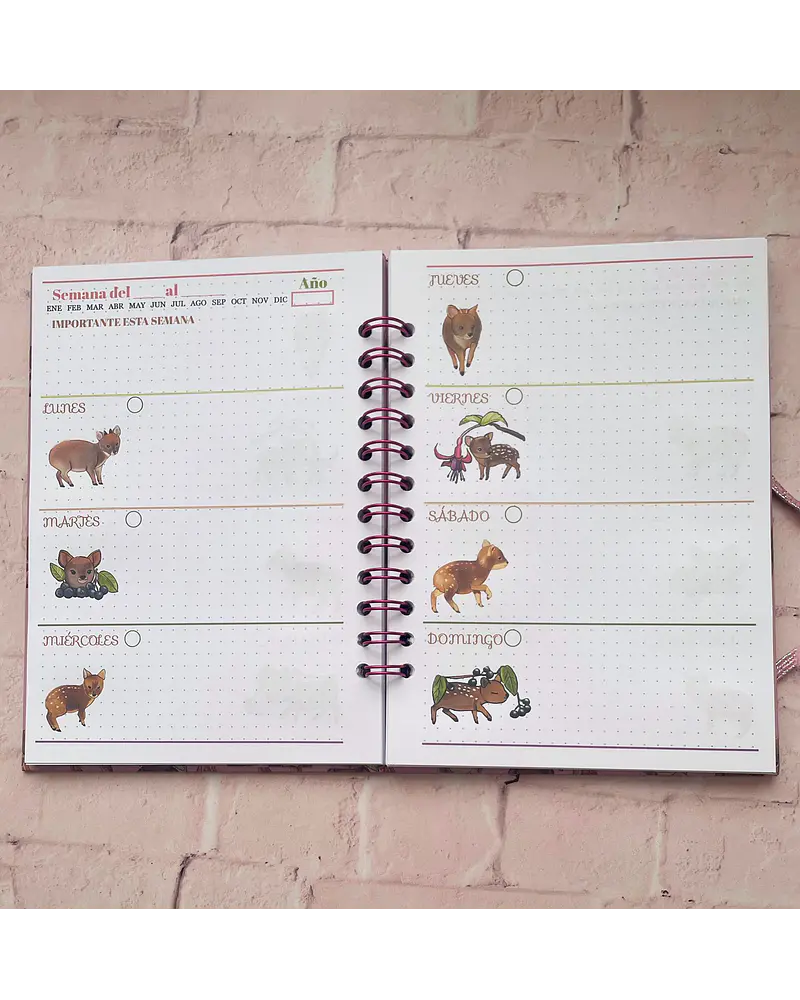 Semana del ____ al ________ Año
ENE FEB MAR ABR MAY JUN JUL AGO SEP OCT NOV DIC
IMPORTANTE ESTA SEMANA
LUNES
MARTES
MIÉRCOLES
JUEVES
VIERNES
SÁBADO
DOMINGO